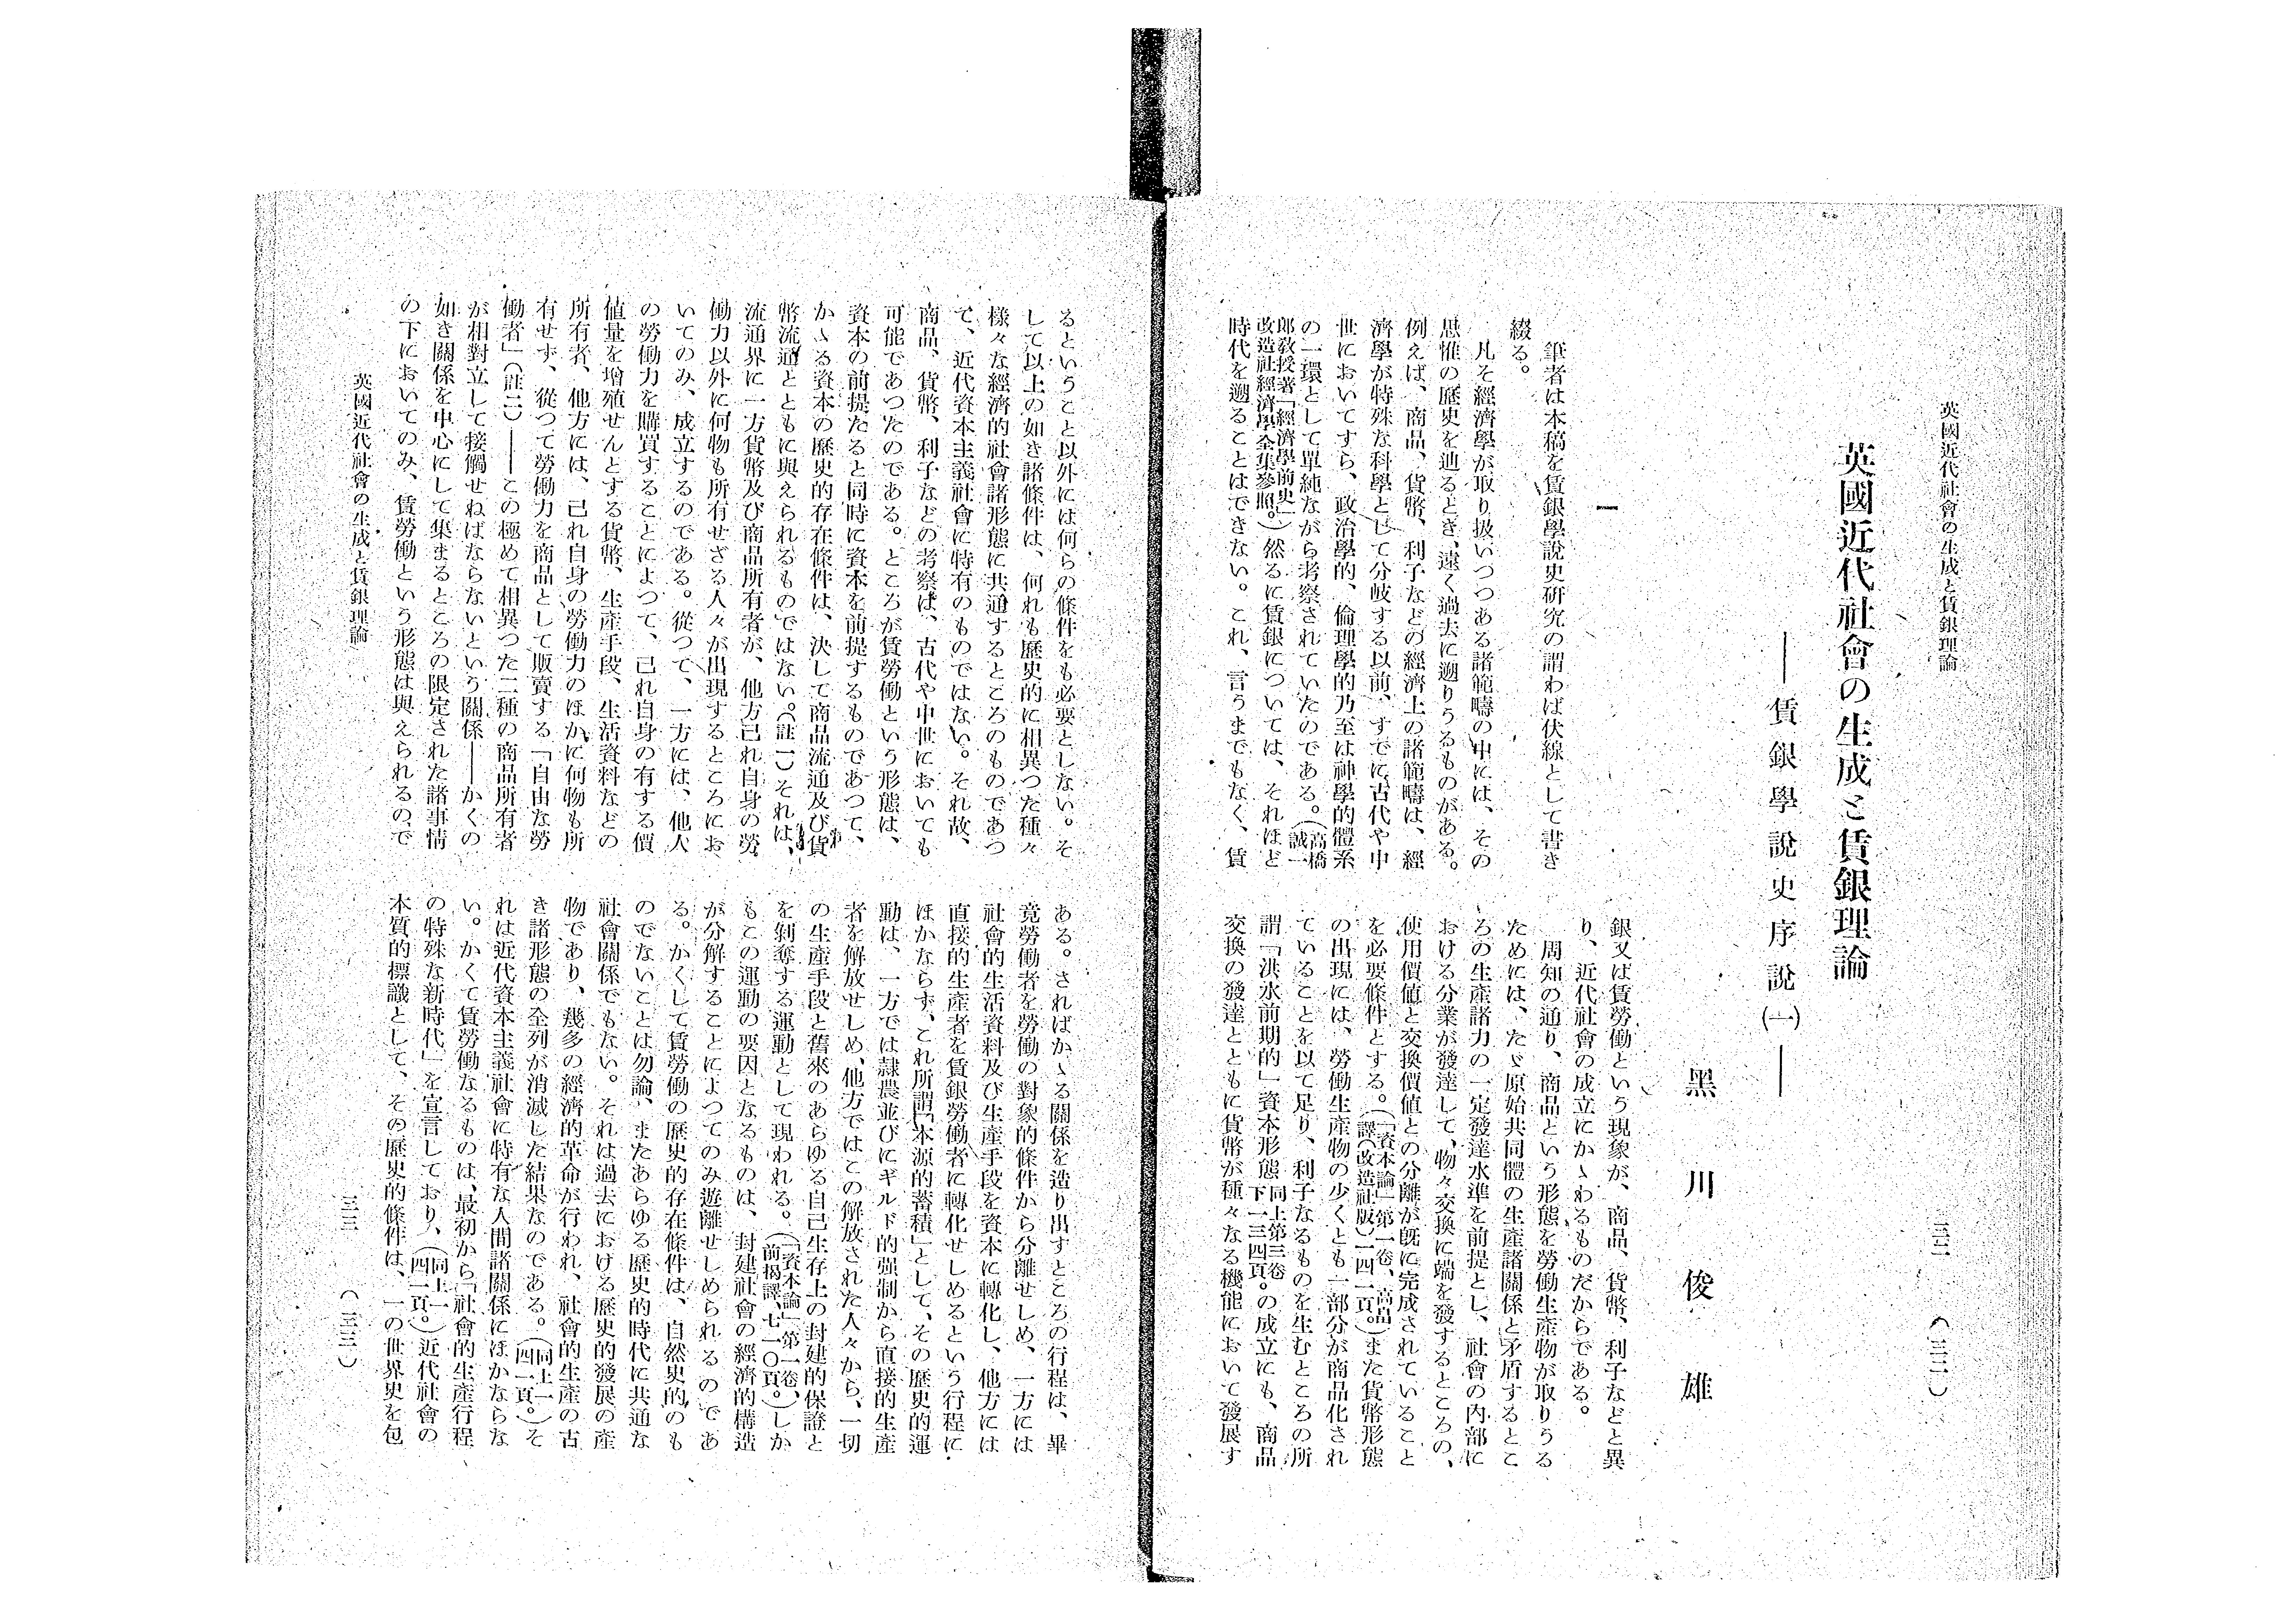 英國近代社會の生成と賃銀理論
三二　（三二）
英國近代社會の生成と賃銀理論
――賃銀學說史序說(一)――
黑川俊雄
一
筆者は本稿を賃銀學說史硏究の謂わば伏線として書き
綴る。
凡そ經濟學が取り扱いつつある諸範疇の中には、その
思惟の歷史を辿るとき、遠く過去に遡りうるものがある。
例えば、商品、貨幣、利子などの經濟上の諸範疇は、經
濟學が特殊な科學として分岐する以前、すでに古代や中
世においてすら、政治學的、倫理學的乃至は神學的體系
の一環として單純ながら考察されていたのである。（高橋誠一
郎敎授著「經濟學前史」改造社經濟學全集參照。）然るに賃銀については、それほど
時代を遡ることはできない。これ、言うまでもなく、賃
銀又は賃勞働という現象が、商品、貨幣、利子などと異
り、近代社會の成立にかゝわるものだからである。
周知の通り、商品という形態を勞働生產物が取りうる
ためには、たゞ原始共同體の生產諸關係と矛盾するとこ
ろの生產諸力の一定發達水準を前提とし、社會の內部に
おける分業が發達して、物々交換に端を發するところの、
使用價値と交換價値との分離が旣に完成されていること
を必要條件とする。（「資本論」第一卷、高品譯（改造社版）一四一頁。）また貨幣形態
の出現には、勞働生產物の少くとも一部分が商品化され
ていることを以て足り、利子なるものを生むところの所
謂「洪水前期的」資本形態同上第三卷下一三四頁。の成立にも、商品
交換の發達とともに貨幣が種々なる機能において發展す
るということ以外には何らの條件をも必要としない。そ
して以上の如き諸條件は、何れも歷史的に相異つた種々
樣々な經濟的社會諸形態に共通するところのものであつ
て、近代資本主義社會に特有のものではない。それ故、
商品、貨幣、利子などの考察は、古代や中世においても
可能であつたのである。ところが賃勞働という形態は、
資本の前提たると同時に資本を前提するものであつて、
かゝる資本の歷史的存在條件は、決して商品流通及び貨
幣流通とともに與えられるものではない。（註一）それは、
流通界に一方貨幣及び商品所有者が、他方己れ自身の勞
働力以外に何物も所有せざる人々が出現するところにお
いてのみ、成立するのである。從つて、一方には、他人
の勞働力を購買することによつて、己れ自身の有する價
値量を增殖せんとする貨幣、生產手段、生活資料などの
所有者、他方には、己れ自身の勞働力のほかに何物も所
有せず、從つて勞働力を商品として販賣する「自由な勞
働者」（註二）――この極めて相異つた二種の商品所有者
が相對立して接觸せねばならないという關係――かくの
如き關係を中心にして集まるところの限定された諸事情
の下においてのみ、賃勞働という形態は與えられるので
ある。さればかゝる關係を造り出すところの行程は、畢
竟勞働者を勞働の對象的條件から分離せしめ、一方には
社會的生活資料及び生產手段を資本に轉化し、他方には
直接的生產者を賃銀勞働者に轉化せしめるという行程に
ほかならず、これ所謂「本源的蓄積」として、その歷史的運
動は、一方では隷農並びにギルド的强制から直接的生產
者を解放せしめ、他方ではこの解放された人々から、一切
の生產手段と舊來のあらゆる自己生存上の封建的保證と
を剝奪する運動として現われる。（「資本論」第一卷、前揭譯、七一〇頁。）しか
もこの運動の要因となるものは、封建社會の經濟的構造
が分解することによつてのみ遊離せしめられるのであ
る。かくして賃勞働の歷史的存在條件は、自然史的のも
のでないことは勿論、またあらゆる歷史的時代に共通な
社會關係でもない。それは過去における歷史的發展の產
物であり、幾多の經濟的革命が行われ、社會的生產の古
き諸形態の全列が消滅した結果なのである。（同上一四一頁。）そ
れは近代資本主義社會に特有な人間諸關係にほかならな
い。かくて賃勞働なるものは、最初から「社會的生產行程
の特殊な新時代」を宣言しており、（同上一四一頁。）近代社會の
本質的標識として、その歷史的條件は、一の世界史を包
英國近代社會の生成と賃銀理論
三三　（三三）